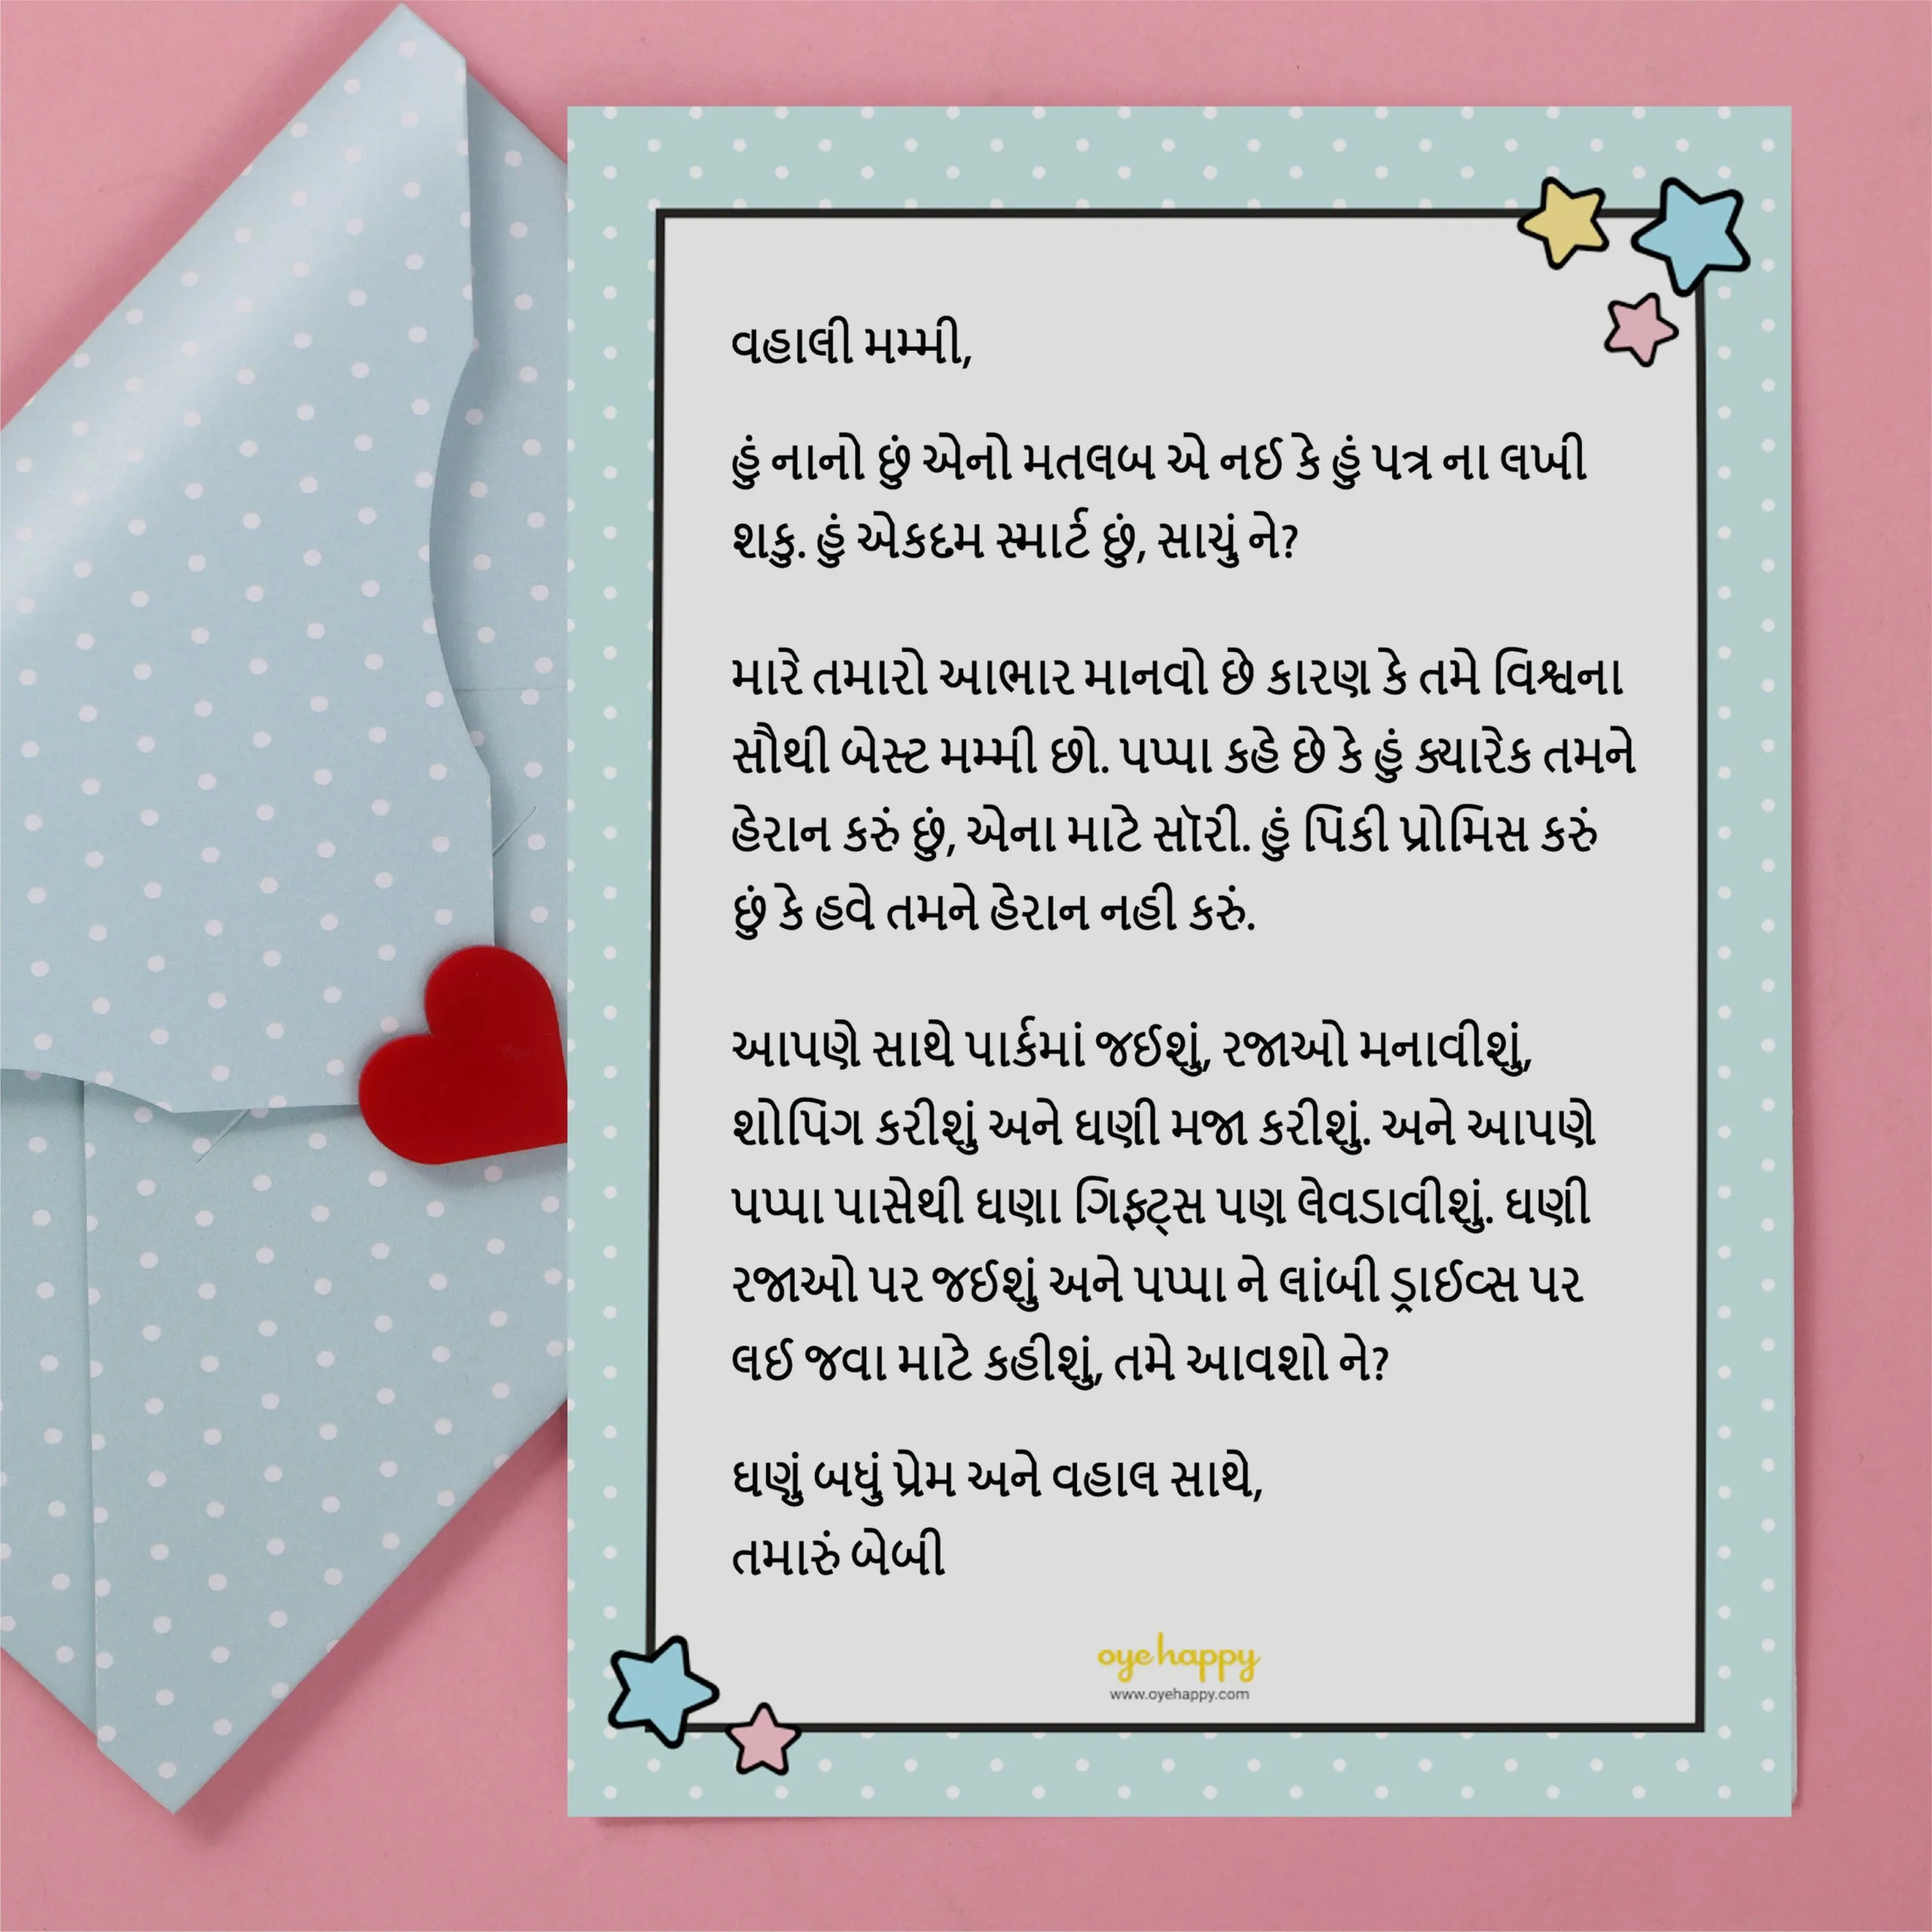 વહાલી મમ્મી,
હું નાનો છું એનો મતલબ એ નઈ કે હું પત્ર ના લખી
શકુ. હું એકદમ સ્માર્ટ છું, સાચું ને?
મારે તમારો આભાર માનવો છે કારણ કે તમે વિશ્વના
સૌથી બેસ્ટ મમ્મી છો. પપ્પા કહે છે કે હું ક્યારેક તમને
હેરાન કરું છું, એના માટે સૉરી. હું પિંકી પ્રોમિસ કરું
છું કે હવે તમને હેરાન નહી કરું.
આપણે સાથે પાર્કમાં જઈશું, રજાઓ મનાવીશું,
શોપિંગ કરીશું અને ઘણી મજા કરીશું. અને આપણે
પપ્પા પાસેથી ઘણા ગિફ્ટ્સ પણ લેવડાવીશું. ઘણી
રજાઓ પર જઈશું અને પપ્પા ને લાંબી ડ્રાઈવ્સ પર
લઈ જવા માટે કહીશું, તમે આવશો ને?
ઘણું બધું પ્રેમ અને વહાલ સાથે,
તમારું બેબી
oye happy
www.oyehappy.com